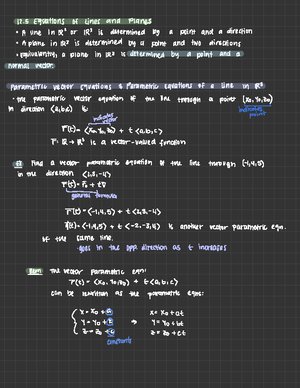 11.5 Equations of Lines and Planes
• A line in ℝ² or ℝ³ is determined by a point and a direction
• A plane in ℝ³ is determined by a point and two directions
• equivalently a plane in ℝ³ is determined by a point and a
normal vector.
Parametric Vector Equations & Parametric Equations of a line in ℝ³
• The parametric vector equation of the line through a point (x₀, y₀, z₀)
in direction ⟨a,b,c⟩ is
indicates vector
indicates point
r(t) = ⟨x₀, y₀, z₀⟩ + t⟨a,b,c⟩
r: ℝ → ℝ³ is a vector-valued function
Find a vector parametric equation of the line through (-1,4,5)
in the direction ⟨2,3,-4⟩
r(t) = r₀ + tv
general formula
r(t) = ⟨-1,4,5⟩ + t⟨2,3,-4⟩
r(t) = ⟨-1,4,5⟩ + t⟨-2,-3,4⟩ is another vector parametric eqn.
of the same line.
goes in the opp direction as t increases
The vector parametric eqn:
r(t) = ⟨x₀, y₀, z₀⟩ + t⟨a,b,c⟩
can be rewritten as the parametric eqns:
x = x₀ + at
y = y₀ + bt
⇒
x = x₀ + at
y = y₀ + bt
z = z₀ + ct
constants